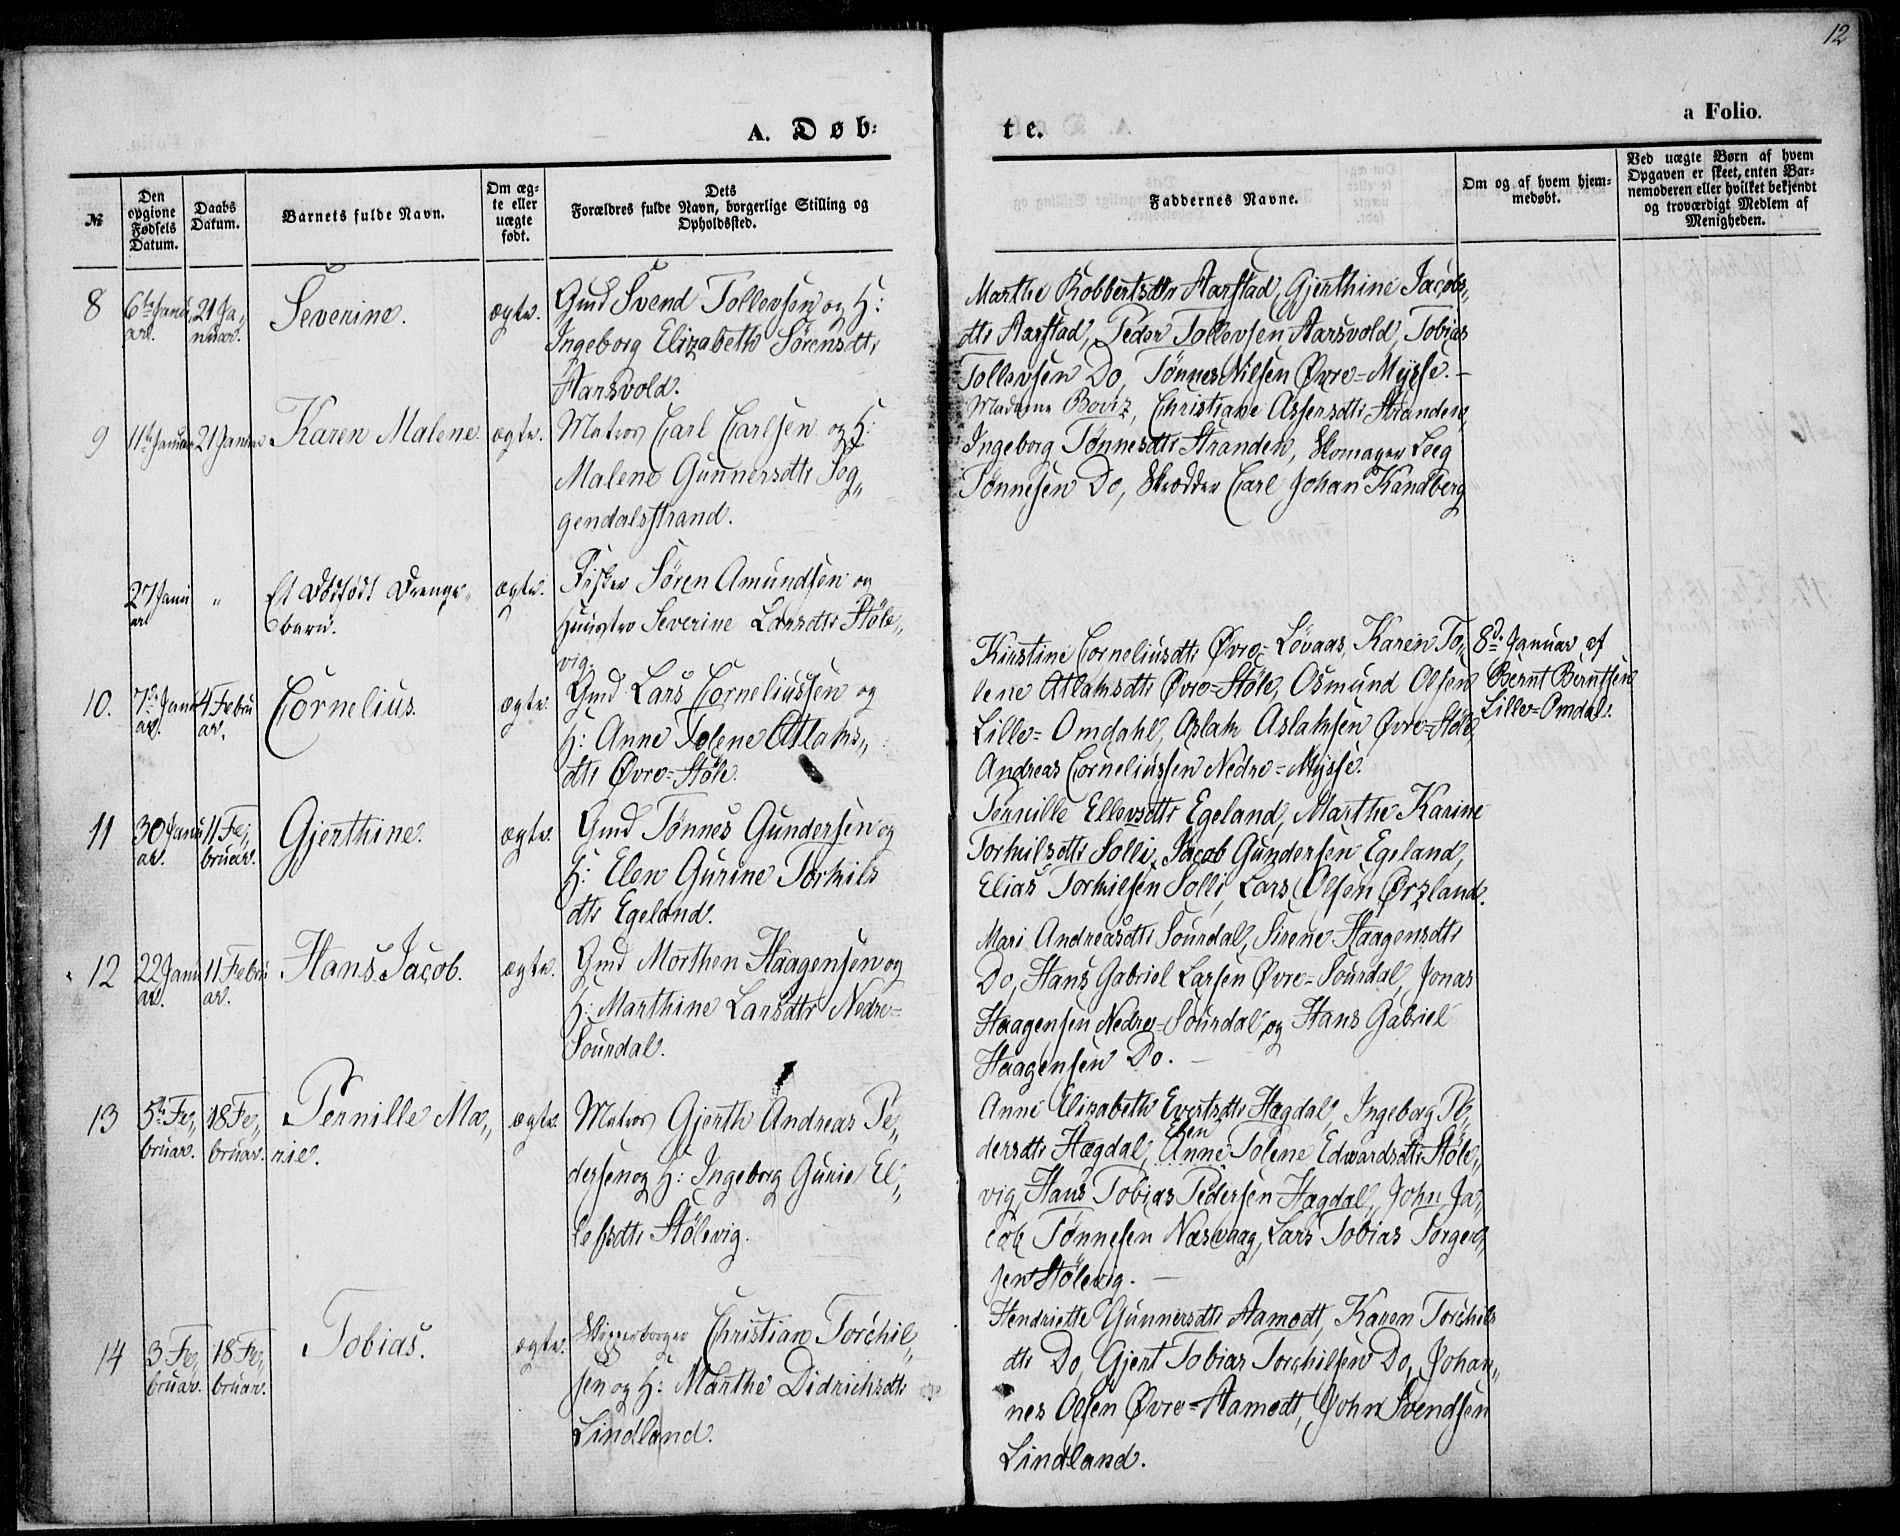 12
a Folio.
A. Døb=
te.
№
Den opgivne Fødsels Datum.
Daabs Datum.
Barnets fulde Navn.
Om ægte eller uægte født.
Dets Forældres fulde Navn, borgerlige Stilling og Opholdssted.
Faddernes Navne.
Om og af hvem hjemmedøbt.
Ved uægte Børn af hvem Opgaven er skeet, enten Barnemoderen eller hvilket bekjendt og troværdigt Medlem af Menigheden.
8
6te Janu„
ar.
21 Ja„
nuar.
Severine.
ægte.
Gmd Svend Tollevsen og H:
Ingeborg Elizabeth Sørensdtr
Aarsvold.
Marthe Robbertsdtr Aarstad, Gjerthine Jacobs„
dtr Aarstad, Peder Tollevsen Aarsvold, Tobias
Tollevsen Do, Tønnes Nilsen Øvre=Mysse. –
9
11te Januar
21 Januar
Karen Malene
ægte.
Matros Carl Carlsen og H:
Malene Gunnersdtr Sog„
gendalsstrand.
Madame Boviz, Christiane Assersdtr Stranden,
Ingeborg Tønnesdtr Stranden, Skomager Leeg
Tønnesen Do, Skrædder Carl Johan Kandberg
27 Janu
ar
„
Et Dødfødt Drenge„
barn.
ægte.
Fisker Søren Amundsen og
Huustro Severine Larsdtr Støle„
vig.
10.
7de Janu
ar.
4 Febru
ar.
Cornelius.
ægte.
Gmd Lars Corneliussen og
H: Anne Tolene Atlaks„
dtr Øvre=Støle.
Kirstine Corneliusdtr Øvre=Lövaas, Karen To„
lene Atlaksdtr Øvre=Støle, Osmund Olsen
Lille=Omdahl, Aslak Aslaksen Øvre=Støle,
Andreas Corneliussen Nedre=Mysse.
8de Januar af
Bernt Berntsen
Lille=Omdal.
11
30 Janu
ar.
11 Fe„
bruar.
Gjerthine.
ægte.
Gmd Tønnes Gundersen og
H: Elen Gurine Torkils
dtr Egeland.
Pernille Ellevsdtr Egeland, Marthe Karine
Torkilsdtr Solli, Jacob Gundersen Egeland,
Elias Torkilsen Solli, Lars Olsen Ørsland.
12
22 Janu
ar.
11 Febru
ar.
Hans Jacob.
ægte.
Gmd Morthen Haagensen og
H: Marthine Larsdtr Nedre=
Sourdal.
Mari Andreasdtr Sourdal, Sirene Haagensdtr
Do, Hans Gabriel Larsen Øvre=Sourdal, Jonas
Haagensen Nedre=Sourdal, og Hans Gabriel
Haagensen Do. –
13
5te Fe„
bruar.
18 Fe„
bruar.
Pernille Ma„
rie.
ægte.
Matros Gjerth Andreas Pe„
dersen og H: Ingeborg Gurie El„
lefsdtr Stölevig.
Anne Elizabeth Evertsdtr Hægdal, Ingeborg Pe„
dersdtr Hægdal, Elen
Anne Tolene Edwardsdtr Støle„
vig, Hans Tobias Pedersen Hægdal, John Ja„
cob Tønnesen Næsvaag, Lars Tobias Torger„
sen Stölevig. –
14
3 Fe„
bruar.
18 Fe„
bruar.
Tobias.
ægte.
Skipperborger Christian Torchil„
sen og H: Marthe Didrichsdtr
Lindland.
Hendriette Gunnersdtr Aamodt, Karen Torchils
dtr Do, Gjert Tobias Torchilsen Do, Johan„
nes Olsen Øvre=Aamodt, John Svendsen
Lindland.